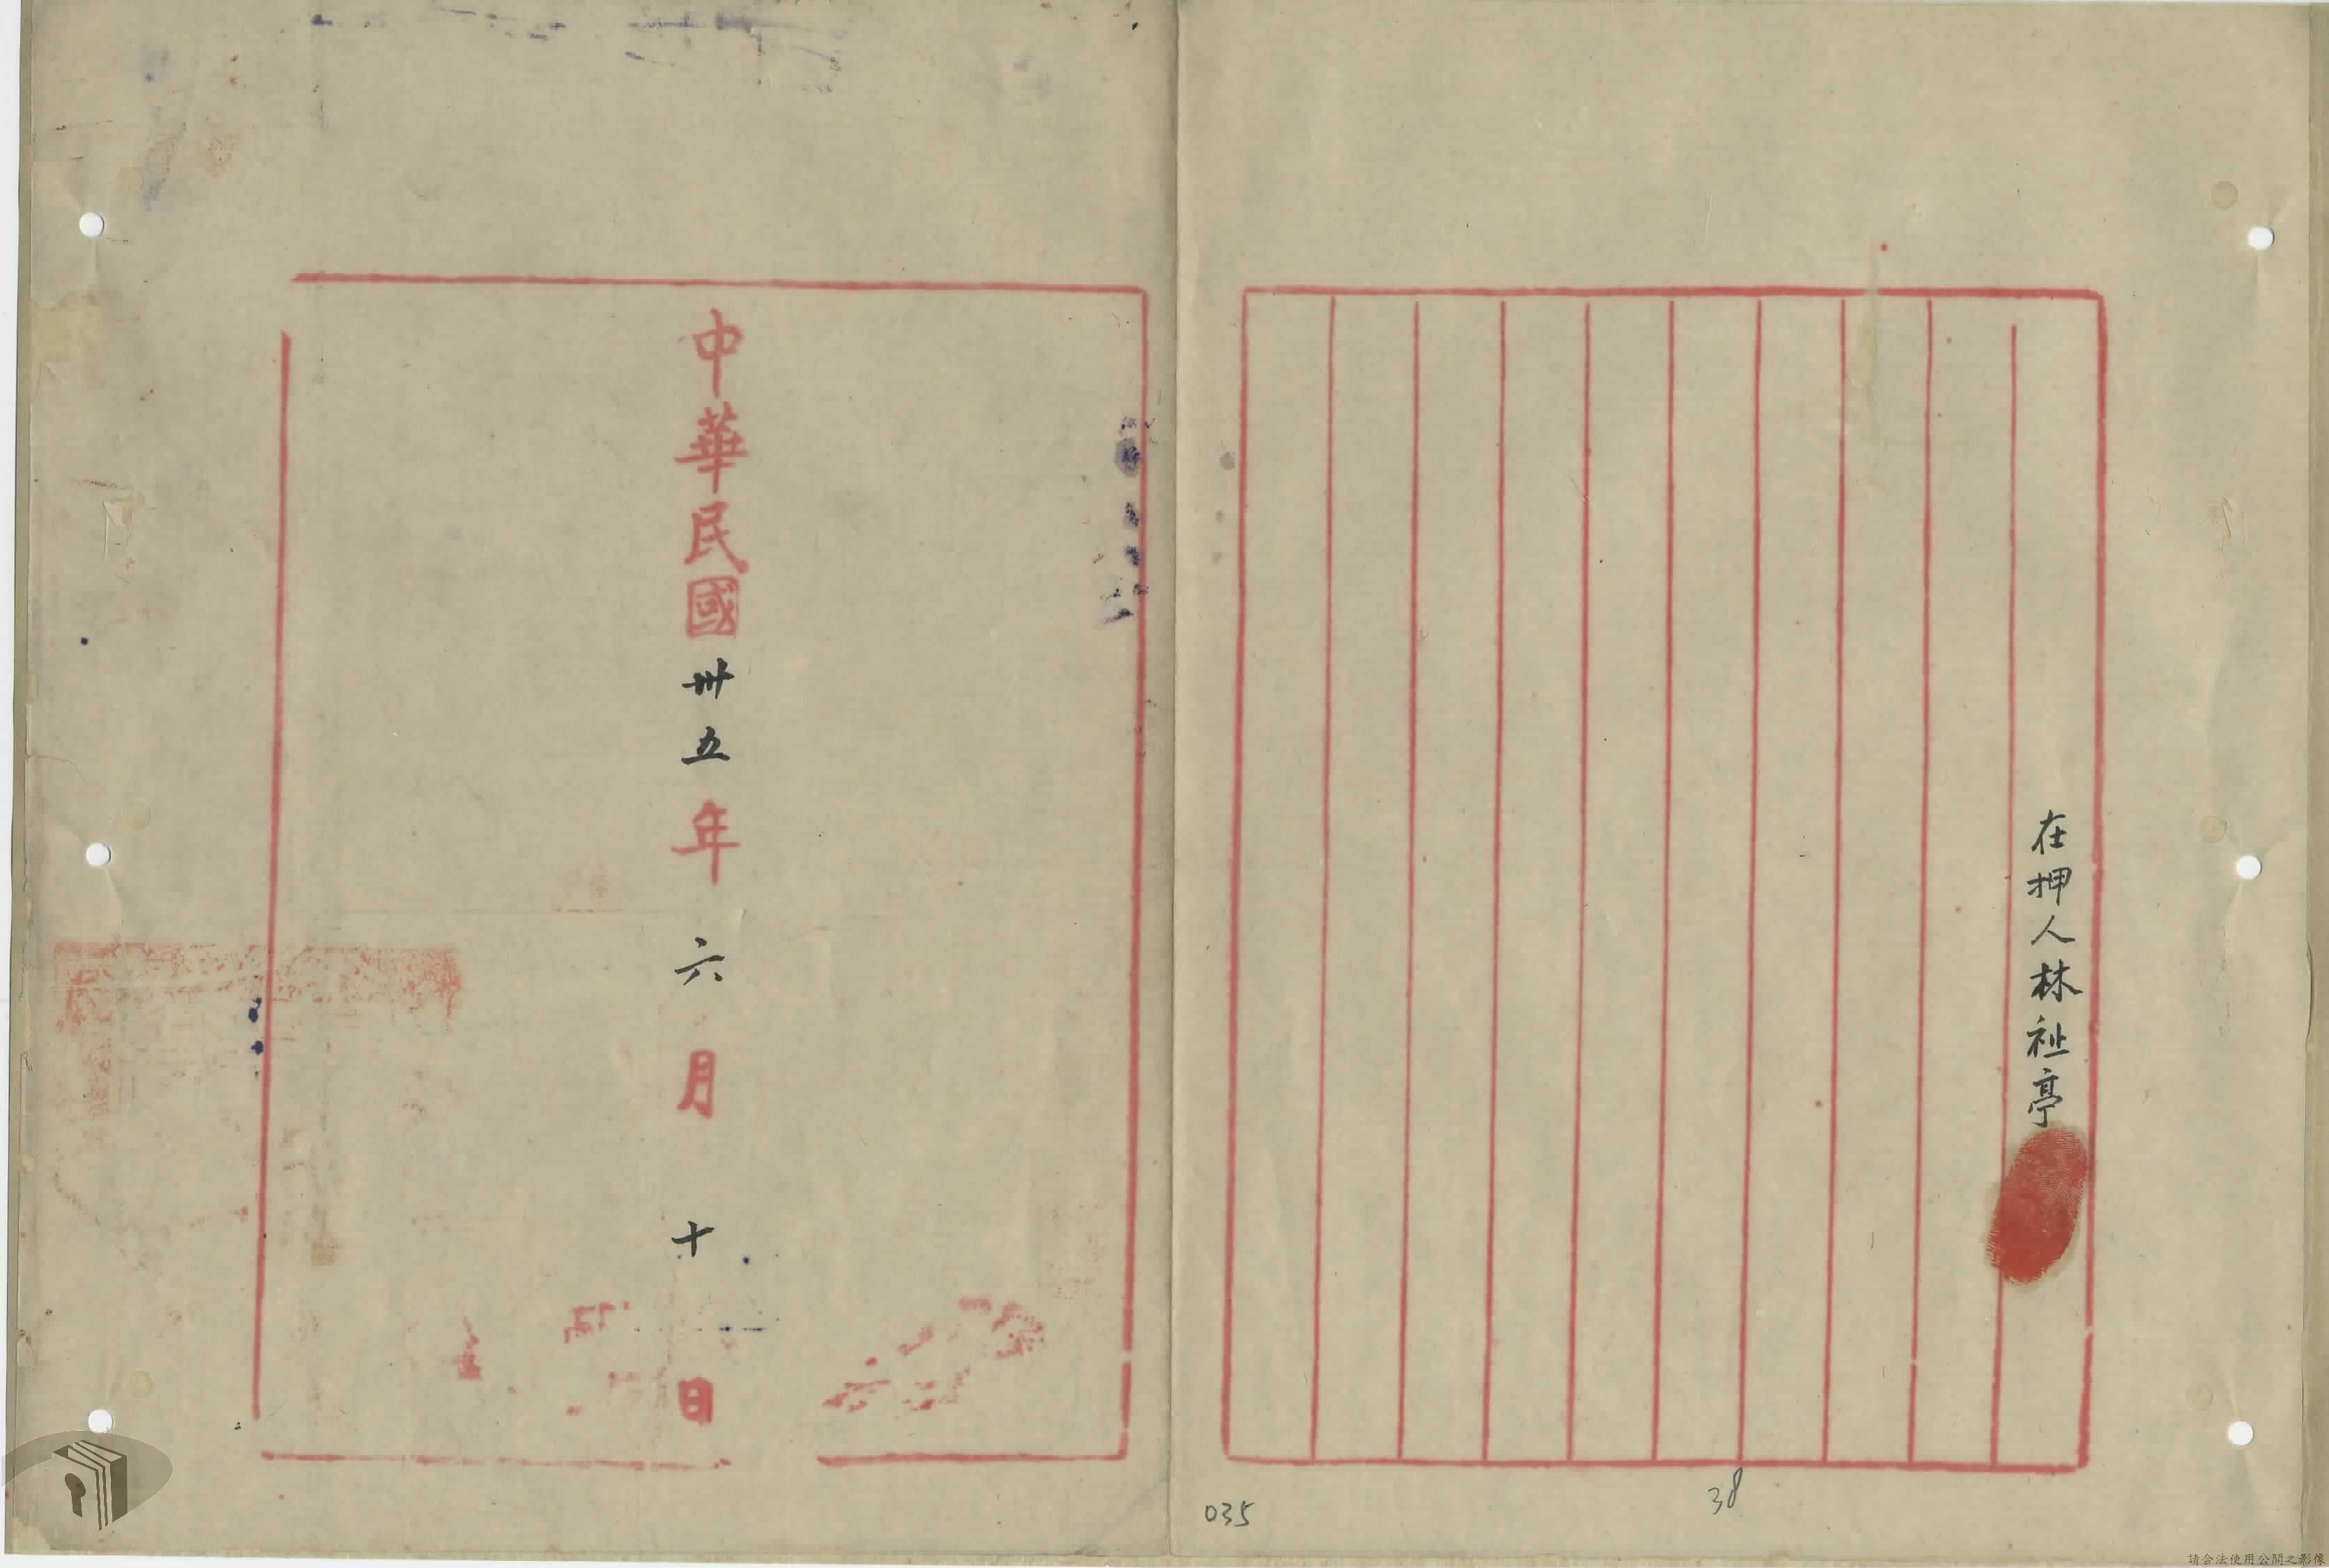 在押人林祉亭
中華民國卅五年六月十日
38
035
請合法使用公開之影像